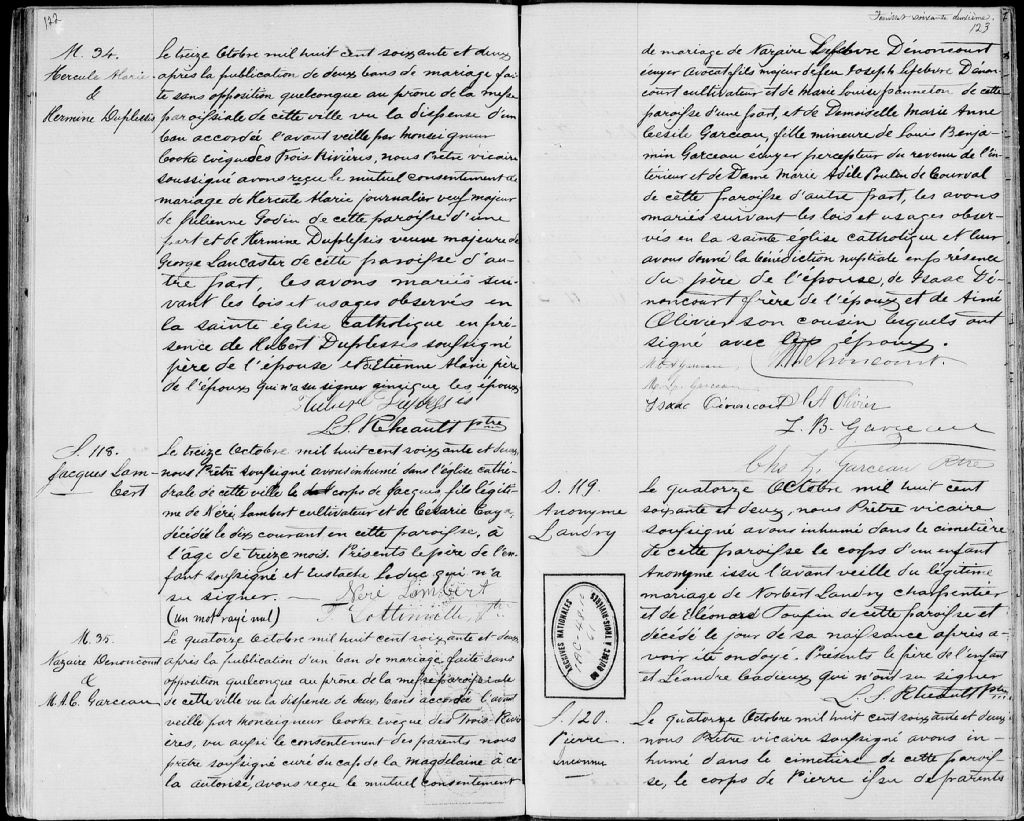 122
M. 34.
Hercule Alarie
&
Hermine Duplessis
Le treize Octobre mil huit cent soixante et deux
après la publication de deux bans de mariage fai-
te sans opposition quelconque au prône de la messe
paroissiale de cette ville vu la dispense d'un
ban accordée l'avant veille par Monseigneur
Cooke evêque des Trois Rivières, nous Prêtre vicaire
soussigné avons reçu le mutuel consentement de
mariage de Hercule Alarie journalier veuf majeur
de Julienne Godin de cette paroisse d'une
part et de Hermine Duplessis veuve majeure de
George Lancaster de cette paroisse d'au-
tre part, les avons mariés sui-
vant les lois et usages observés en
la sainte église catholique en pré-
sence de Hubert Duplessis soussigné
père de l'épouse et Etienne Alarie père
de l'époux qui n'a su signer ainsi que les époux
Hubert Duplessis
L. S. Rheault Ptre
S. 118.
Jacques Lam-
bert
Le treize Octobre mil huit cent soixante et deux,
nous Prêtre soussigné avons inhumé dans l'église cathé-
drale de cette ville le corps de Jacques fils légiti-
me de Néré Lambert cultivateur et de Césarie
décédée le dix courant en cette paroisse, à
l'âge de treize mois. Présents le père de l'en-
fant soussigné et Eustache Leduc qui n'a
su signer. — Néré Lambert
(un mot rayé nul) Lottinville, Ptre
M. 35.
Nazaire Denoncourt
&
M. A. C. Garceau
Le quatorze Octobre mil huit cent soixante et deux
après la publication d'un ban de mariage faite sans
opposition quelconque au prône de la messe paroissiale
de cette ville vu la dispense de deux bans accordée l'avant
veille par Monseigneur Cooke evêque des Trois-Rivi-
ères, vu aussi le consentement des parents nous
prêtre soussigné curé du cap de la Magdelaine à ce-
la autorisé, avons reçu le mutuel consentement
Feuillet soixante deuxième.
123
de mariage de Nazaire Lefebvre Dénoncourt
écuyer avocat fils majeur de feu Joseph Lefebvre Dénon-
court cultivateur et de Marie Louise Panneton de cette
paroisse d'une part, et de Demoiselle Marie Anne
Cécile Garceau, fille mineure de Louis Benja-
min Garceau écuyer percepteur du revenu de l'in-
térieur et de Dame Marie Adèle Poulin de Courval
de cette paroisse d'autre part, les avons
mariés suivant les lois et usages obser-
vés en la sainte église catholique et leur
avons donné la bénédiction nuptiale en présence
du père de l'épouse, de Isaac Dé-
noncourt frère de l'époux et de Aimé
Olivier son cousin lesquels ont
signé avec les époux.
Garceau, N. Denoncourt.
Garceau
Isaac Dénoncourt L A Olivier
L. B. Garceau
Chs Z. Garceau Ptre
S. 119.
Anonyme
Landry
Le quatorze Octobre mil huit cent
soixante et deux, nous Prêtre vicaire
soussigné avons inhumé dans le cimetière
de cette paroisse le corps d'un enfant
Anonyme issu l'avant veille du légitime
mariage de Norbert Landry charpentier
et de Eléonard Toupin de cette paroisse et
décédé le jour de sa naissance après a-
voir été ondoyé. Présents le père de l'enfant
et Léandre Cadieux qui n'ont su signer
L. S. Rheault Ptre
ARCHIVES NATIONALES
DU QUÉBEC À TROIS-RIVIÈRES
S. 120.
Pierre
inconnu
Le quatorze Octobre mil huit cent soixante et deux
nous Prêtre vicaire soussigné avons in-
humé dans le cimetière de cette parois-
se, le corps de Pierre issu de parents